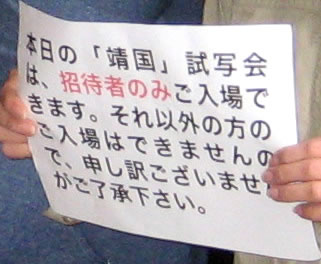 本日の「靖国」試写会
は、招待者のみご入場で
きます。それ以外の方の
ご入場はできませんの
で、申し訳ございませ
がご了承下さい。